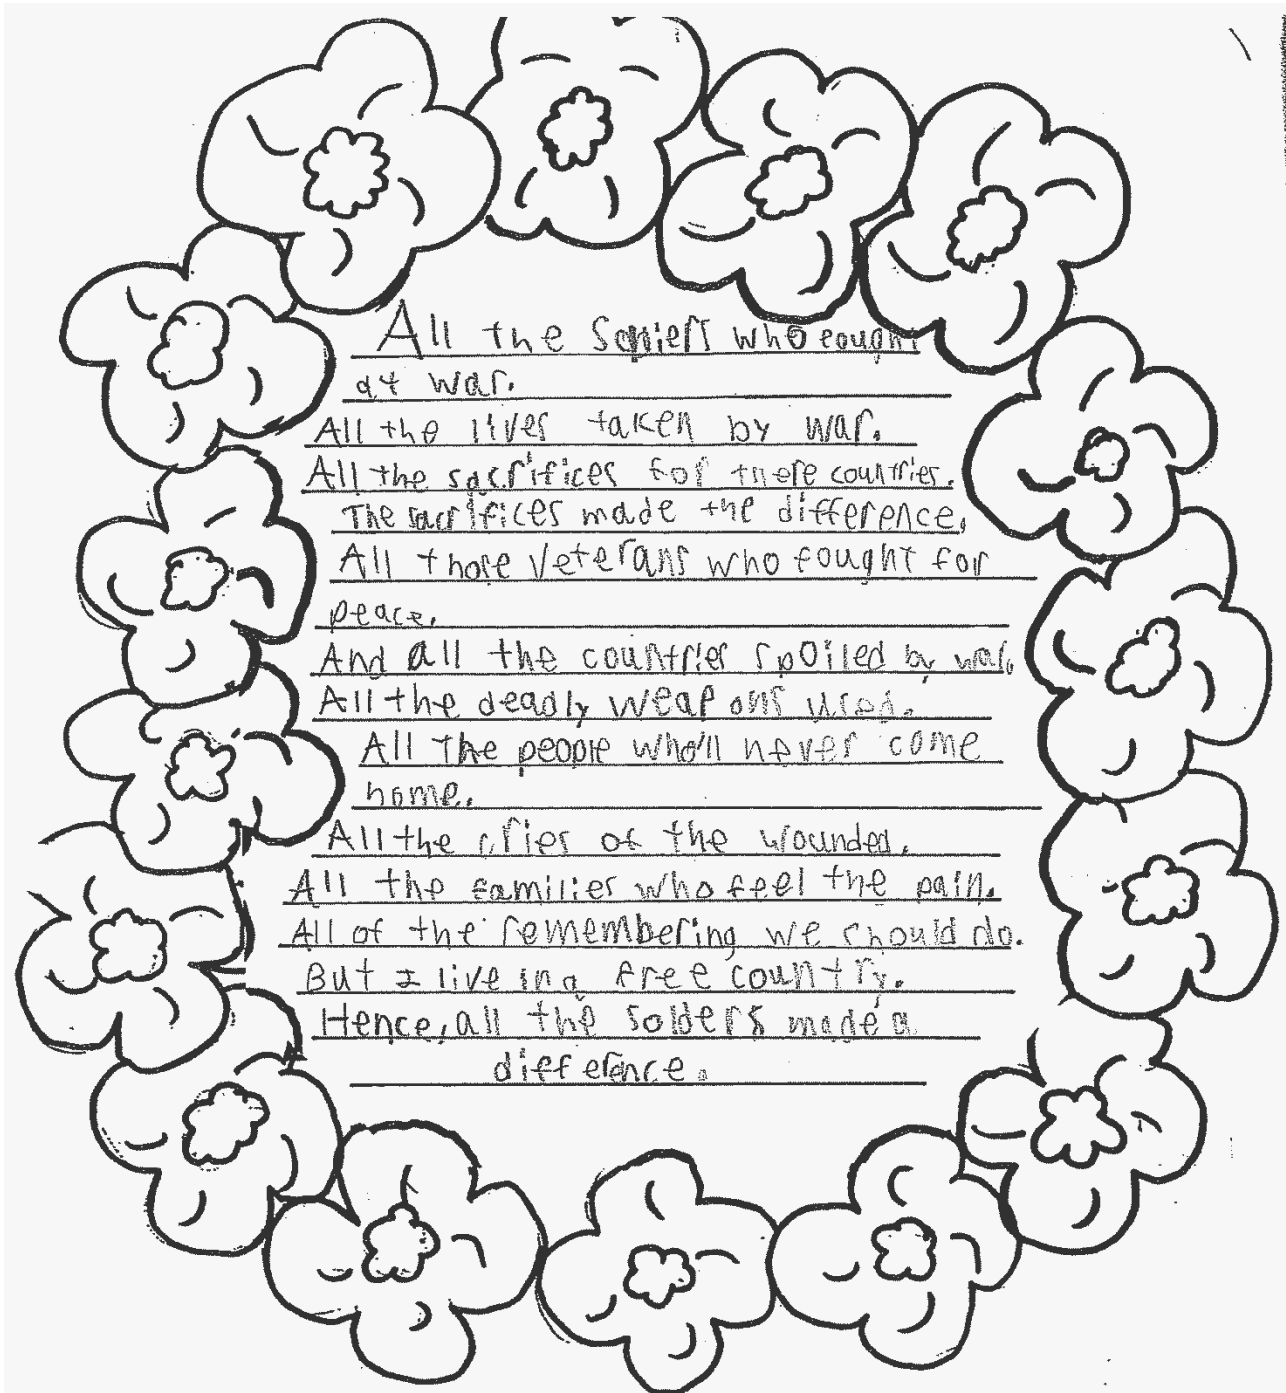 All the who fought
at war.
All the lives taken by war.
All the sacrifices for there countries.
The sacrifices made the difference.
All those veterans who fought for
peace.
And all the countries spoiled by war.
All the deadly weapons used.
All the people who'll never come
home.
All the cries of the wounded.
All the families who feel the pain.
All of the remembering we should do.
But I live in a free country.
Hence, all the solders made a
difference.